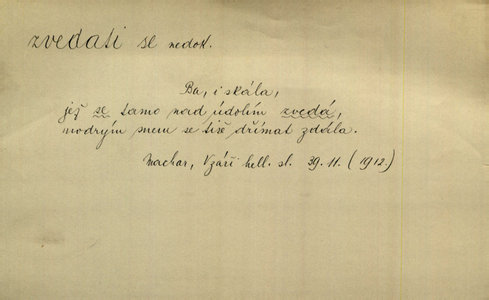 zvedati se nedok.
Ba, i skála,
jež se tamo nad údolím zvedá,
modrým snem se tiše dřímat zdála.
Machar, V záři hell. sl. 39. 11. (1912.)